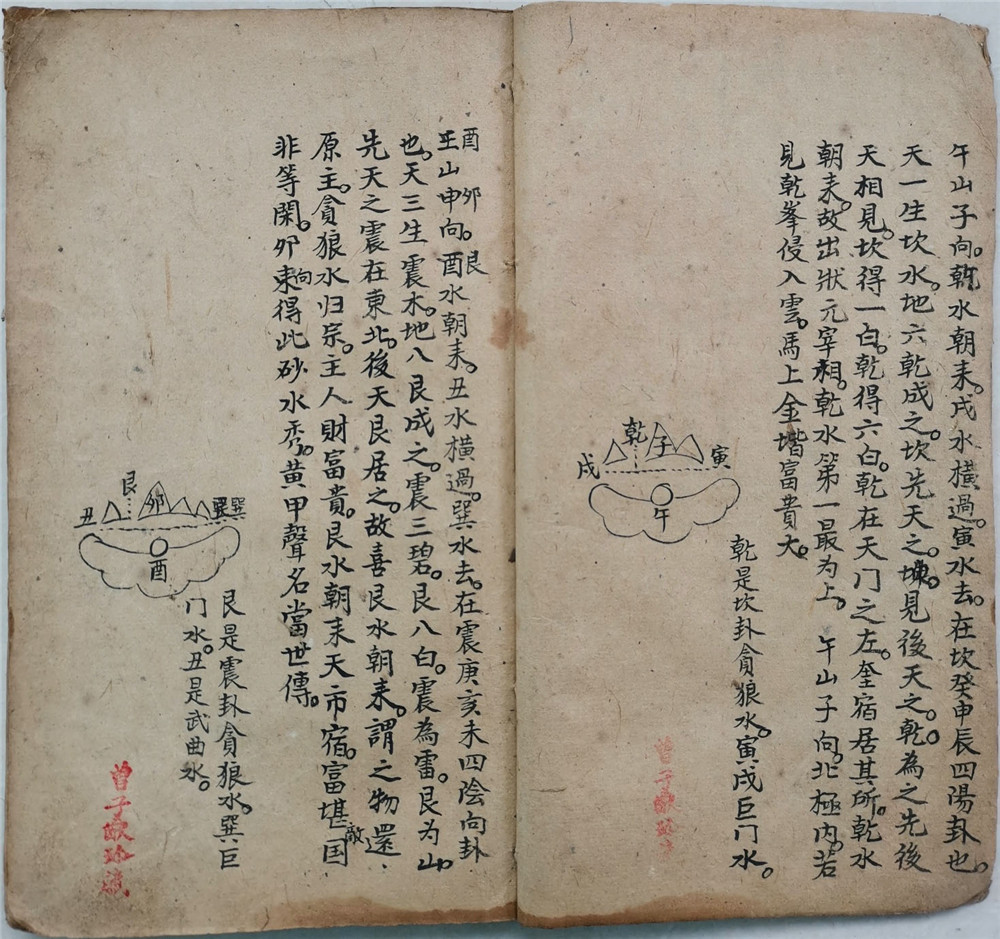 午山子向。乾水朝来。戌水橫過。寅水去。在坎癸申辰四陽卦也。
天一生坎水。地六乾成之。坎先天之坤。見後天之乾。為之先後
天相見。坎得一白。乾得六白。乾在天门之左。奎宿居其所。乾水
朝来。故出狀元宰相。乾水第一最为上。 午山子向。北極内。若
見乾峯侵入雲。馬上金堦富貴大。
戌 乾 子 寅
午
乾是坎卦貪狼水。寅戌巨门水。
酉 卯 艮
王山申向。酉水朝来。丑水橫過。巽水去。在震庚亥未四陰向卦
也。天三生震木。地八艮成之。震三碧。艮八白。震為雷。艮为山。
先天之震在東北。後天艮居之。故喜艮水朝来。謂之物還
原主。貪狼水归宗。主人財富貴。艮水朝来天市宿。富堪敵国
非等閑。卯向東得此砂水秀。黄甲聲名當世傳。
丑 艮 卯 巽
酉
艮是震卦貪狼水。巽巨
门水。丑是武曲水。
曾子